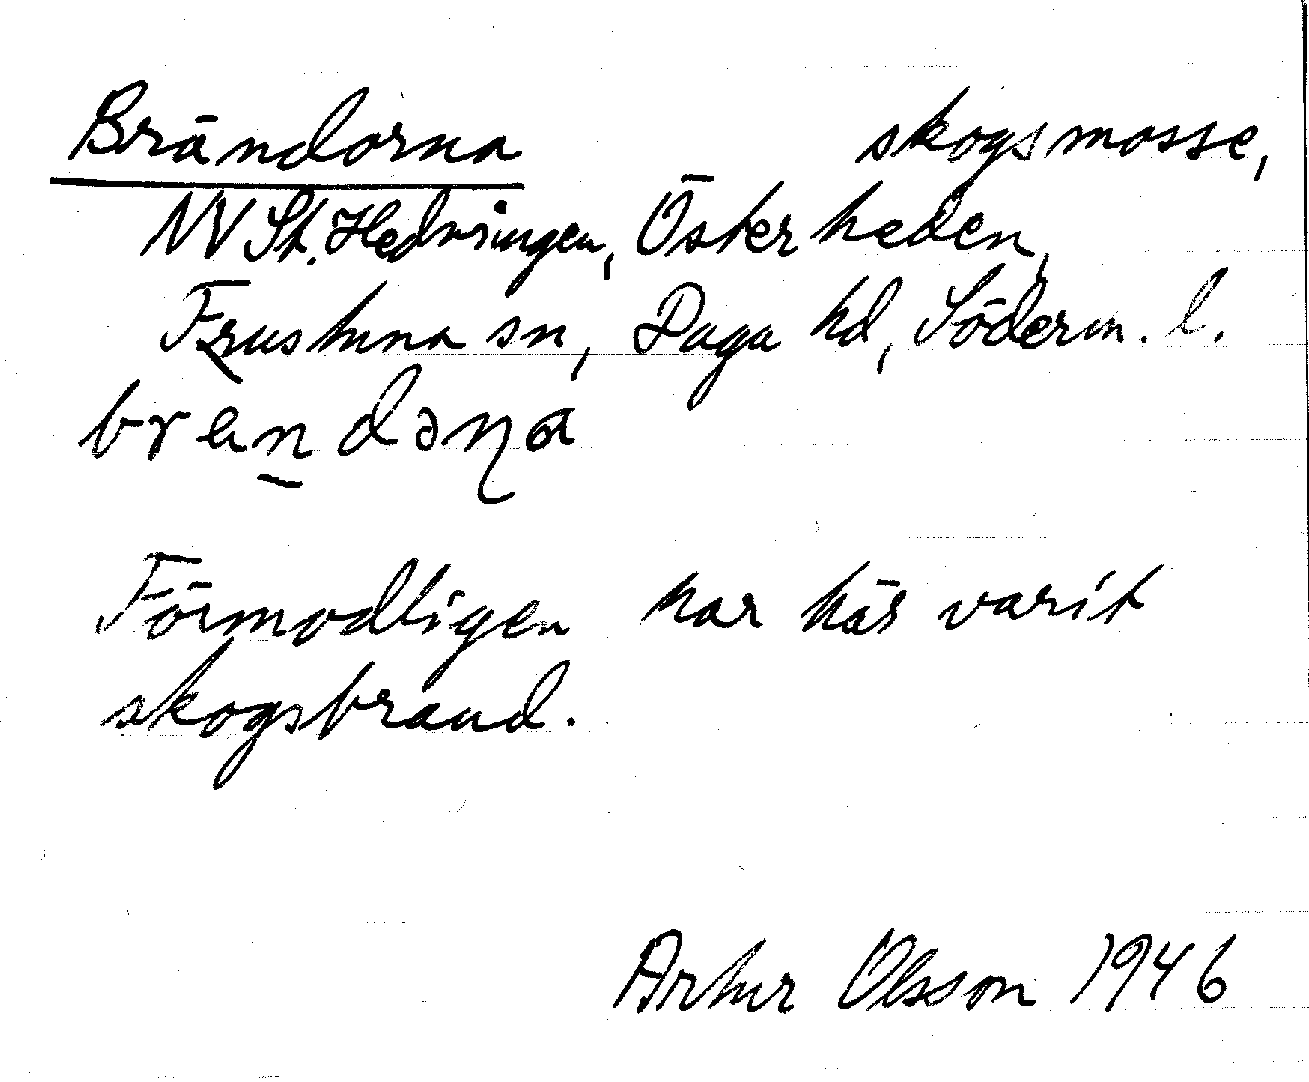 Brändorna skogsmosse,
NV St. Hedvringen, Österheden,
Frustuna sn, Daga hd, Söderm. l.
brendəṇa
Förmodligen har här varit
skogsbrand.
Artur Olsson 1946